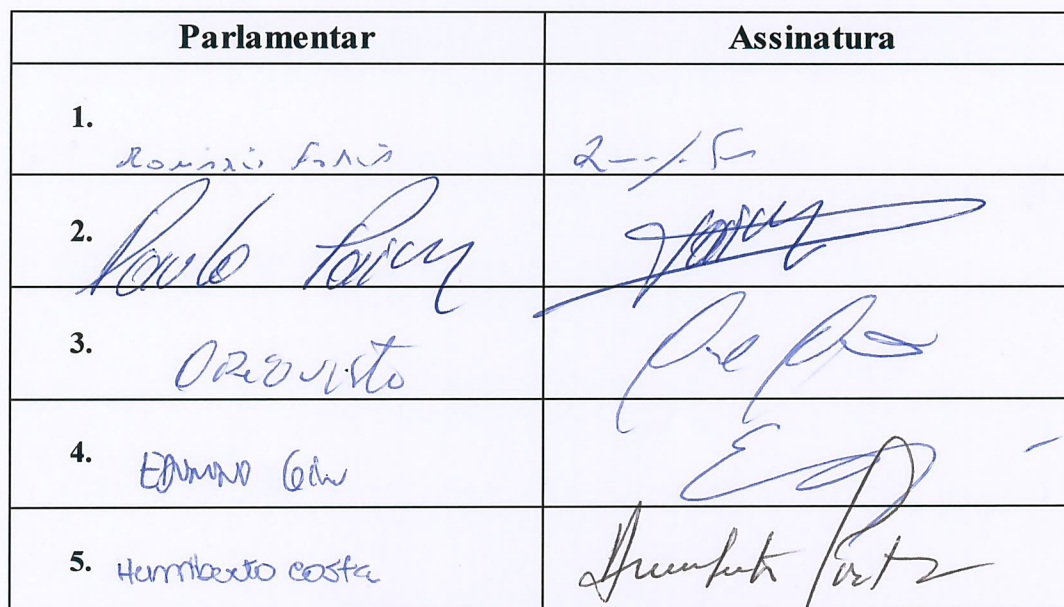 Parlamentar Assinatura
1. Romário Faria
2. Paulo Paim Paim
3. Oriovisto
4. EDUARDO Girão
5. Humberto costa Humberto Costa